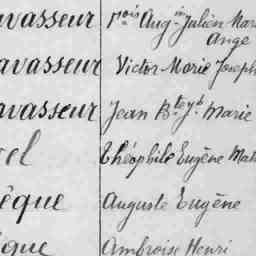 avasseur Fçois Aug.in Julien Mari
Ange
avasseur Victor Marie Joseph
avasseur Jean B.te y.s Marie
cel Théophile Eugène Mat
èque Auguste Eugène
èque Ambroise Henri